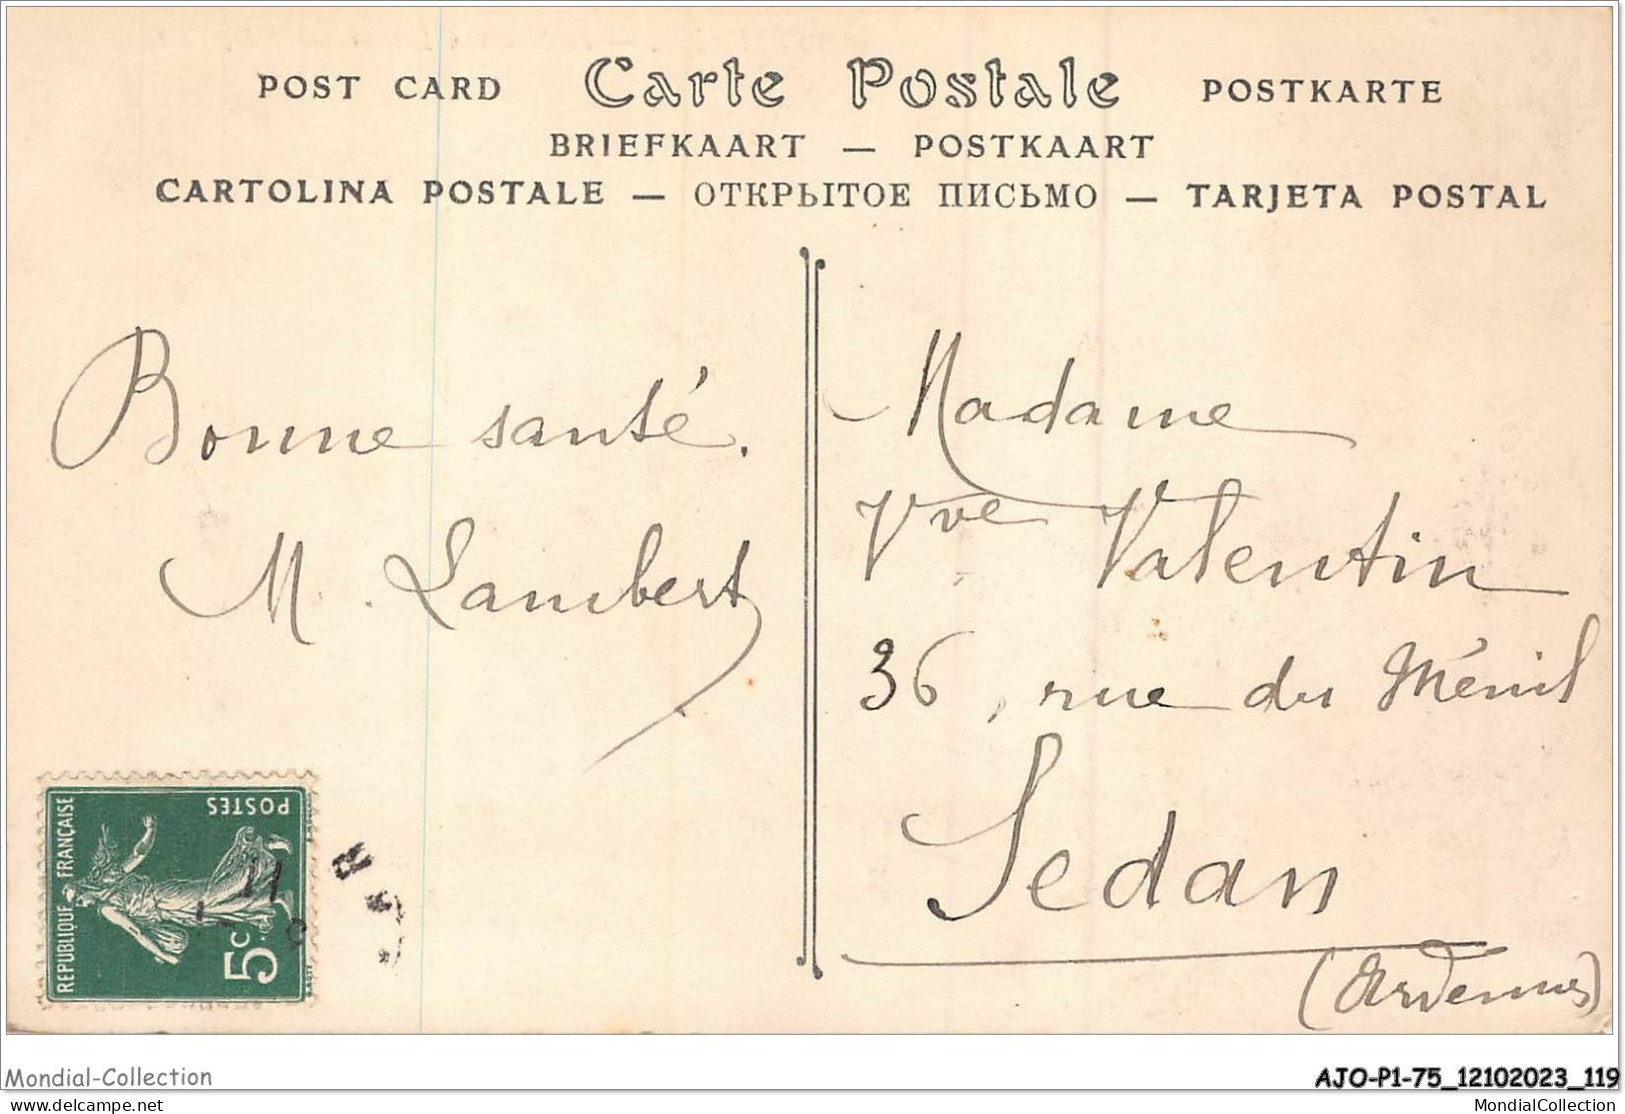 POST CARD Carte Postale POSTKARTE
BRIEFKAART — POSTKAART
CARTOLINA POSTALE — ОТКРЫТОЕ ПИСЬМО — TARJETA POSTAL
Bonne santé.
M. Lambert
Madame
Vve Valentin
36, rue du Ménil
Sedan
(Ardennes)
REPUBLIQUE FRANÇAISE
POSTES
5c.
11
Mondial-Collection
AJO-P1-75_12102023_119
mc101.delcampe.net
MondialCollection